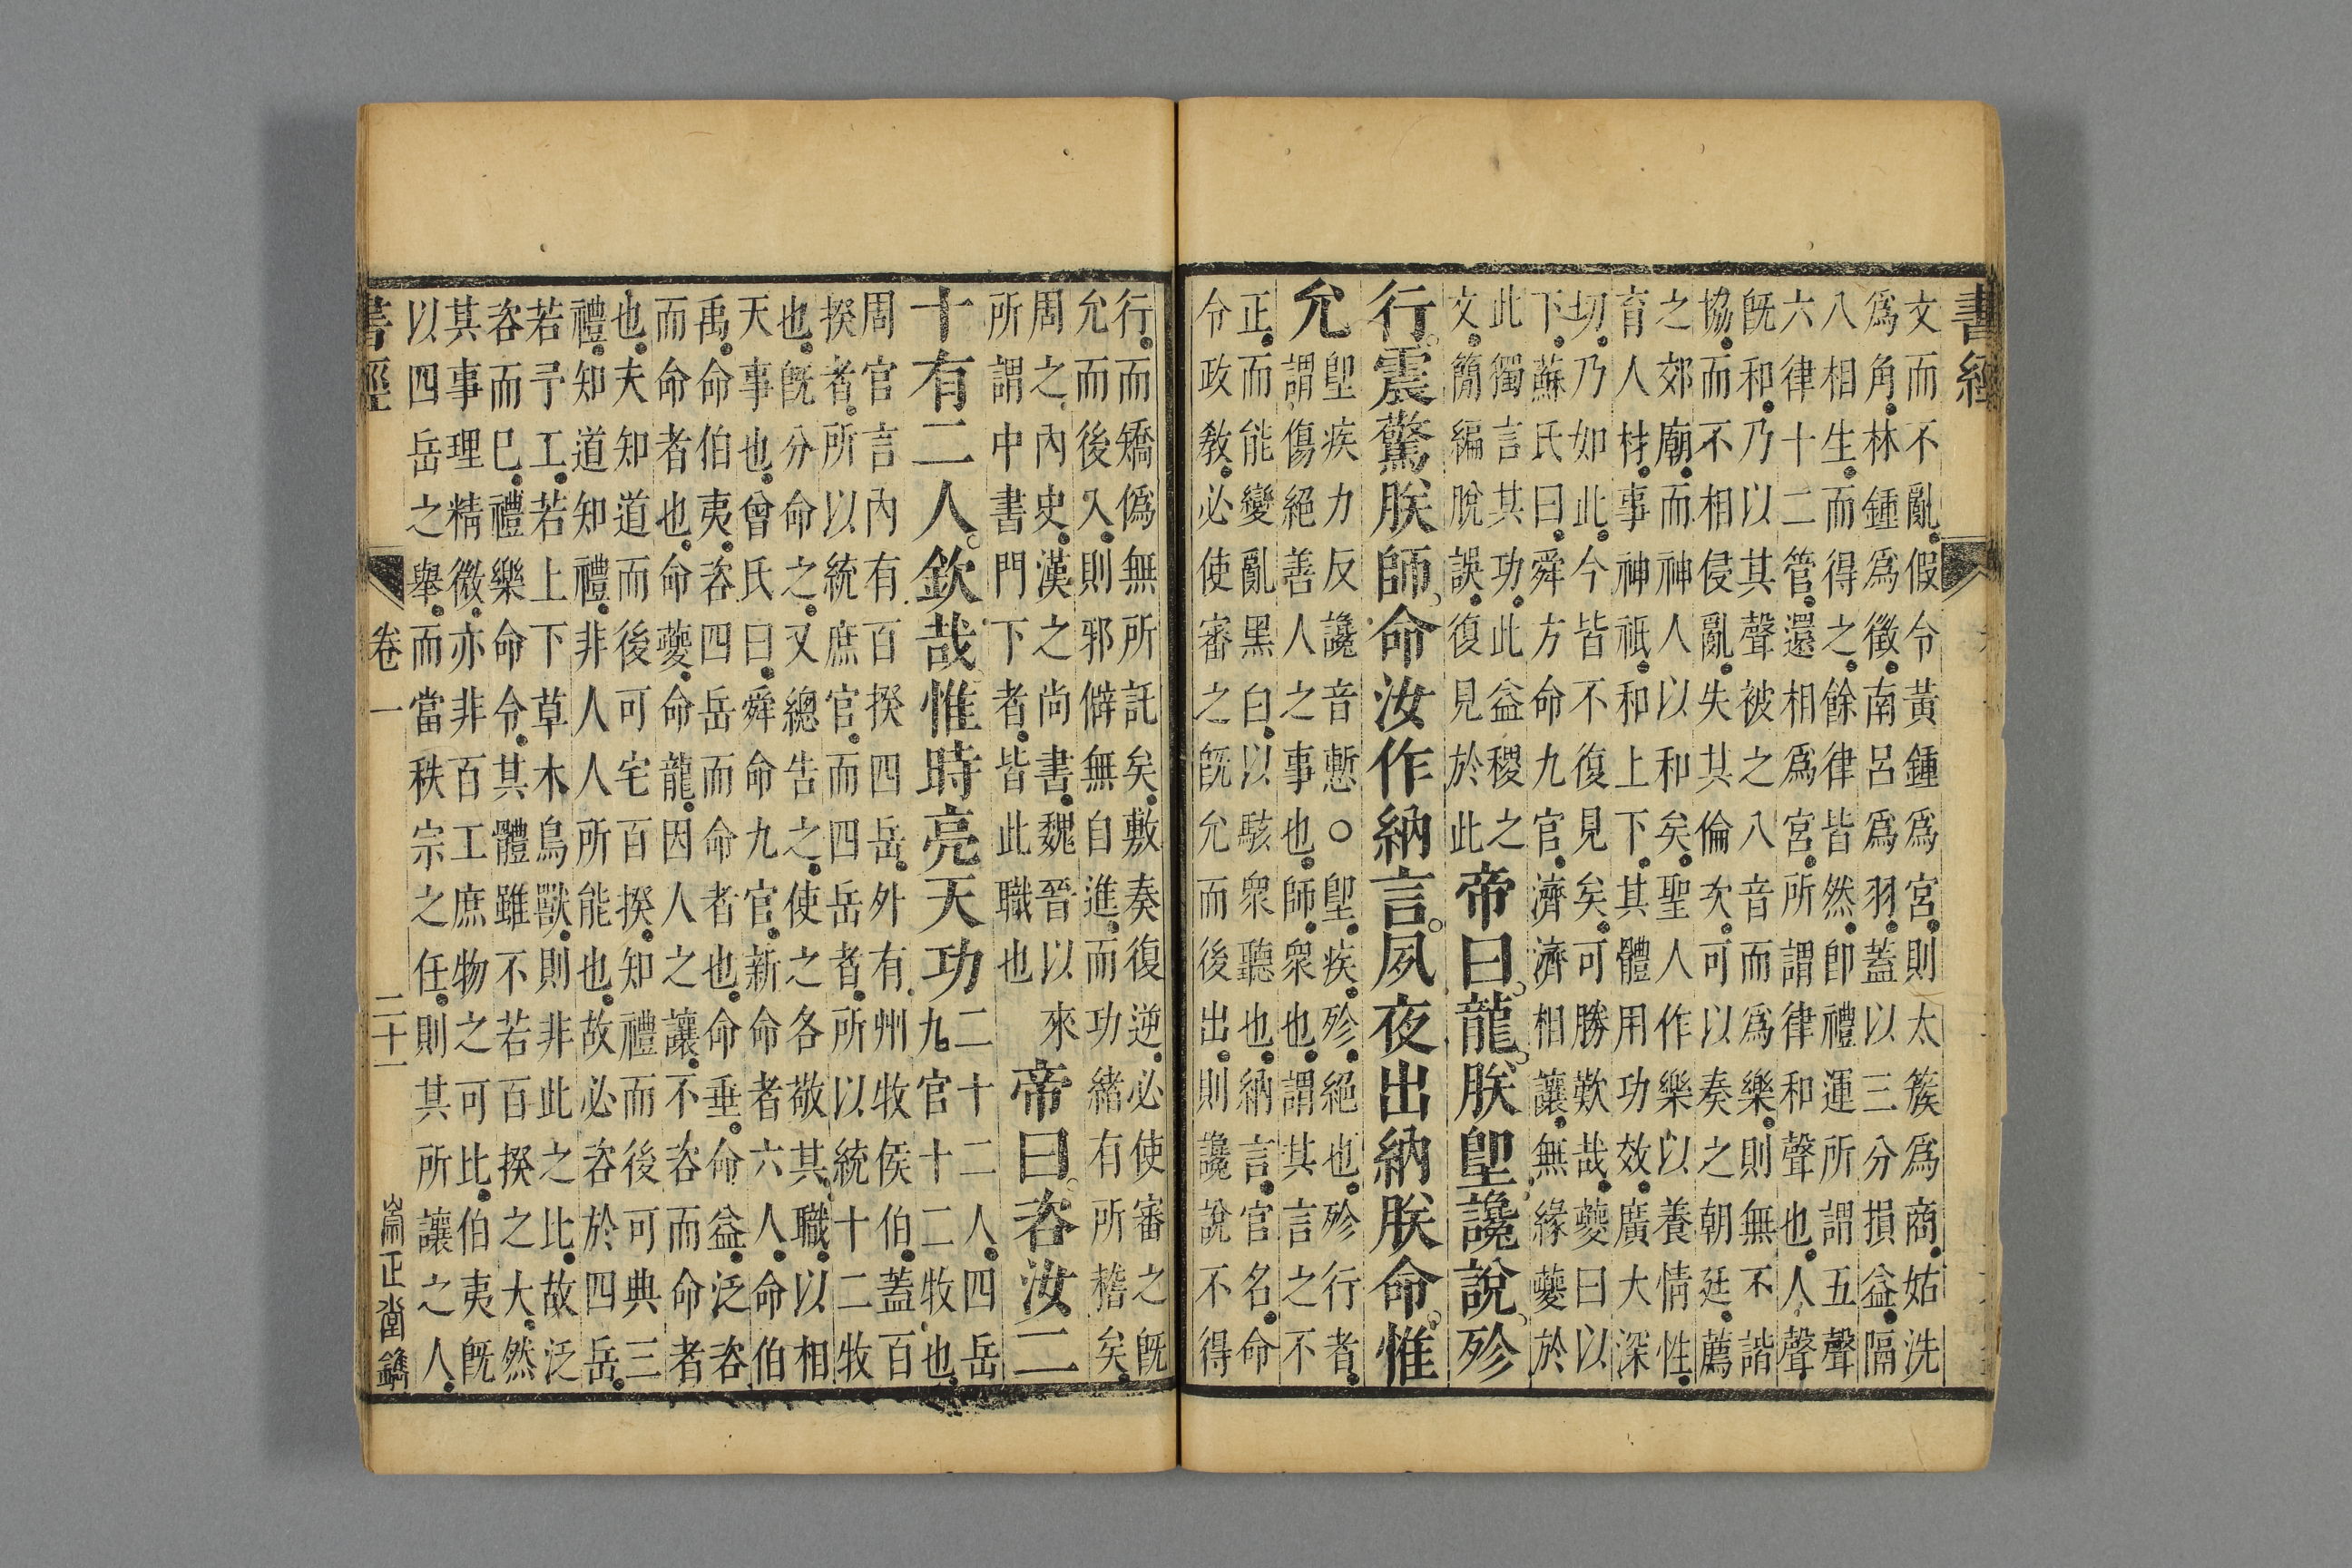 書經
文而不亂假令黃鍾爲宮則太簇爲商姑洗
爲角林鍾爲徵南呂爲羽蓋以三分損益隔
八相生而得之餘律皆然卽禮運所謂五聲
六律十二管還相爲宮所謂律和聲也人聲
旣和乃以其聲被之八音而爲樂則無不諧
協而不相侵亂失其倫次可以奏之朝廷薦
之郊廟而神人以和矣聖人作樂以養情性
育人材事神祇和上下其體用功效廣大深
切乃如此今皆不復見矣可勝歎哉夔曰以
下蘇氏曰舜方命九官濟濟相讓無緣夔於
此獨言其功此益稷之
文簡編脫誤復見於此
帝曰龍朕堲讒說殄
行震驚朕師命汝作納言夙夜出納朕命惟
允
堲疾力反讒音慙○堲疾殄絕也殄行者
謂傷絕善人之事也師衆也謂其言之不
正而能變亂黑白以駭衆聽也納言官名命
令政敎必使審之旣允而後出則讒說不得
行而矯僞無所託矣敷奏復逆必使審之旣
允而後入則邪僻無自進而功緒有所稽矣
周之內史漢之尚書魏晉以來
所謂中書門下者皆此職也
帝曰咨汝二
十有二人欽哉惟時亮天功
二十二人四岳
九官十二牧也
周官言內有百揆四岳外有州牧侯伯蓋百
揆者所以統庶官而四岳者所以統十二牧
也旣分命之又總告之使之各敬其職以相
天事也曾氏曰舜命九官新命者六人命伯
禹命伯夷咨四岳而命者也命垂命益泛咨
而命者也命夔命龍因人之讓不咨而命者
也夫知道而後可宅百揆知禮而後可典三
禮知道知禮非人人所能也故必咨於四岳
若予工若上下草木鳥獸則非此之比故泛
咨而已禮樂命令其體雖不若百揆之大然
其事理精微亦非百工庶物之可比伯夷旣
以四岳之舉而當秩宗之任則其所讓之人
書經 卷一 二十一 崇正堂鐫